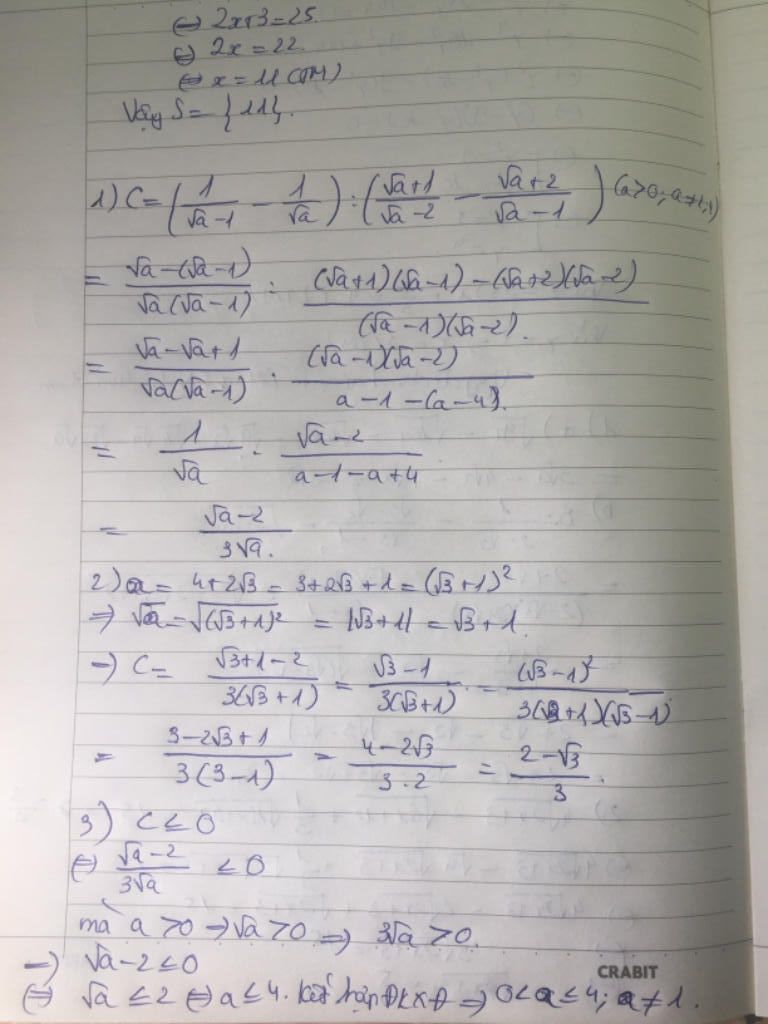 ⇔ 2x+3=25.
⇔ 2x = 22.
⇔ x = 11 (TM)
Vậy S = {11}.
1) C = (1/(√a-1) - 1/√a) : ((√a+1)/(√a-2) - (√a+2)/(√a-1)) (a>0; a≠1;4)
= (√a-(√a-1))/(√a(√a-1)) : ((√a+1)(√a-1)-(√a+2)(√a-2))/((√a-1)(√a-2)).
= (√a-√a+1)/(√a(√a-1)) . ((√a-1)(√a-2))/(a-1-(a-4)).
= 1/√a . (√a-2)/(a-1-a+4)
= (√a-2)/(3√a).
2) a = 4+2√3 = 3+2√3+1 = (√3+1)²
⇒ √a = √((√3+1)²) = |√3+1| = √3+1.
→) C = (√3+1-2)/(3(√3+1)) = (√3-1)/(3(√3+1)) = (√3-1)²/(3(√3+1)(√3-1))
= (3-2√3+1)/(3(3-1)) = (4-2√3)/(3.2) = (2-√3)/3.
3) C ≤ 0
⇔ (√a-2)/(3√a) ≤ 0
mà a>0 → √a>0 ⇒ 3√a>0.
→) √a-2 ≤ 0
⇔ √a ≤ 2 ⇔ a ≤ 4. Kết hợp ĐKXĐ ⇒ 0<a≤4; a≠1.
CRABIT